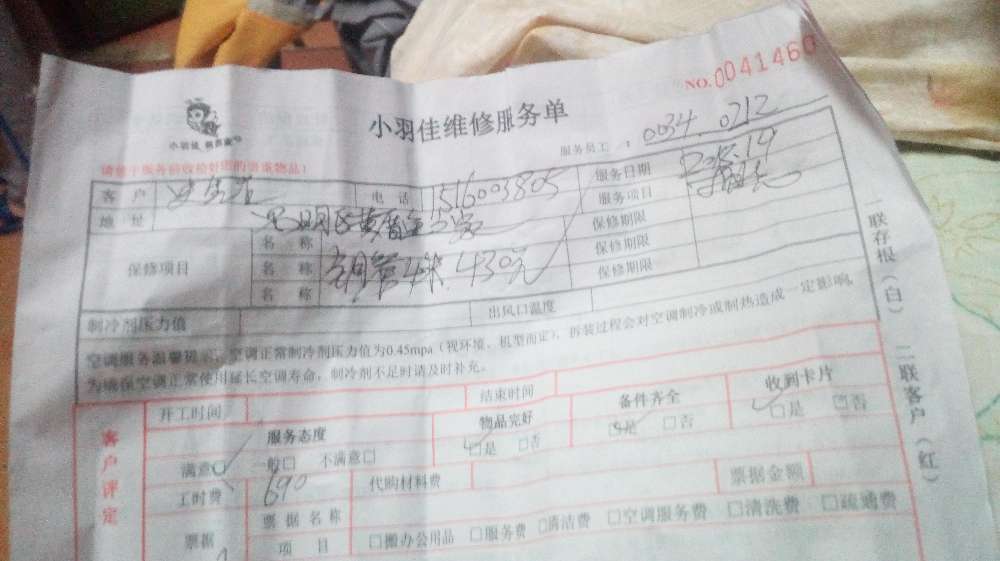 NO.0041460
小羽佳维修服务单
服务员工: 0034. 0712
客户 电话 1516003805 服务日期
地址 服务项目
保修项目 名称 保修期限
名称 铜管4米 430元 保修期限
名称 保修期限
制冷剂压力值 出风口温度
空调服务温馨提示:空调正常制冷剂压力值为0.45mpa(视环境、机型而定),拆装过程会对空调制冷或制热造成一定影响,
为确保空调正常使用延长空调寿命,制冷剂不足时请及时补充。
一联存根(白) 二联客户(红)
客户评定
开工时间 结束时间
服务态度 物品完好 备件齐全 收到卡片
满意□ 一般□ 不满意□ □是 □否 □是 □否 □是 □否
工时费 690 代购材料费 票据金额
票据 票据名称
项目 □搬办公用品 □服务费 □清洁费 □空调服务费 □清洗费 □疏通费